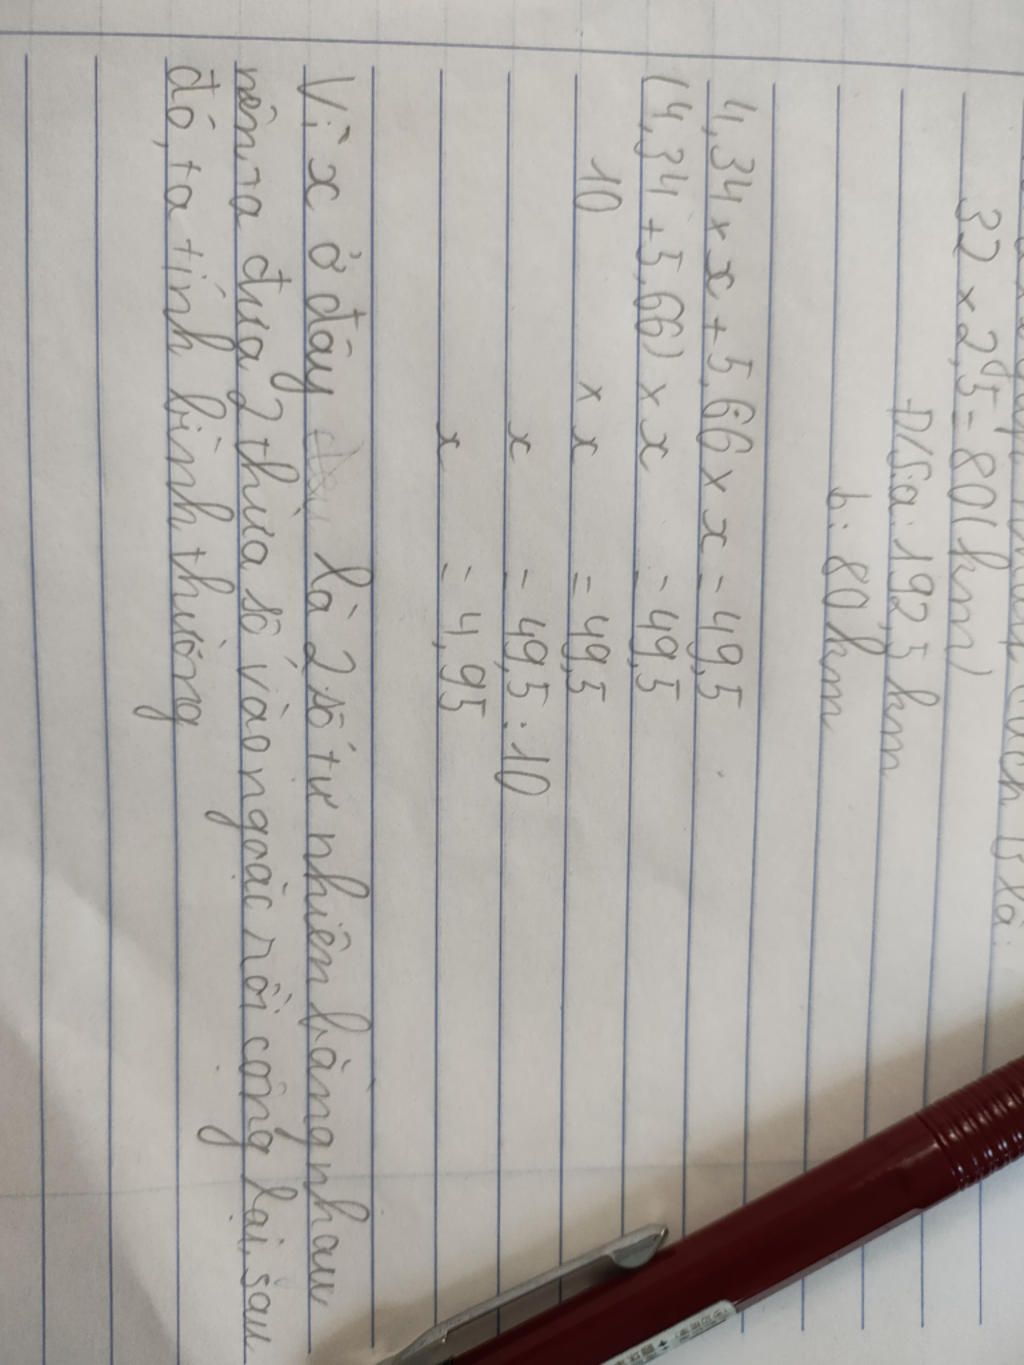 32 x 2,5 = 80 (km)
Đ/S: a: 192,5 km
b: 80 km
4,34 x x + 5,66 x x = 49,5
(4,34 + 5,66) x x = 49,5
10 x x = 49,5
x = 49,5 : 10
x = 4,95
Vì x ở đây là 2 số tự nhiên bằng nhau
nên ta đưa 2 thừa số vào ngoặc rồi cộng lại, sau
đó, ta tính bình thường